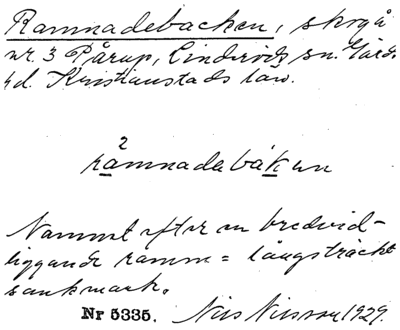 Ramnadebacken, skog å
nr. 3 Pårup, Linderöds sn. Gärds
hd. Kristianstads län.
2
ràmnadabák un
Namnet efter en bredvid-
liggande ramm = långsträckt
sankmark.
Nr 5335. Nils Nilsson 1929.